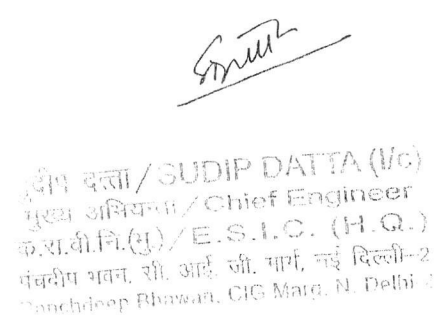 दत्ता / SUDIP DATTA (I/c)
मुख्य अभियन्ता / Chief Engineer
क.रा.बी.नि.(मु.) / E.S.I.C. (H.Q.)
पंचदीप भवन, सी. आई. जी. मार्ग, नई दिल्ली-2
Panchdeep Bhawan, CIG Marg, N. Delhi-